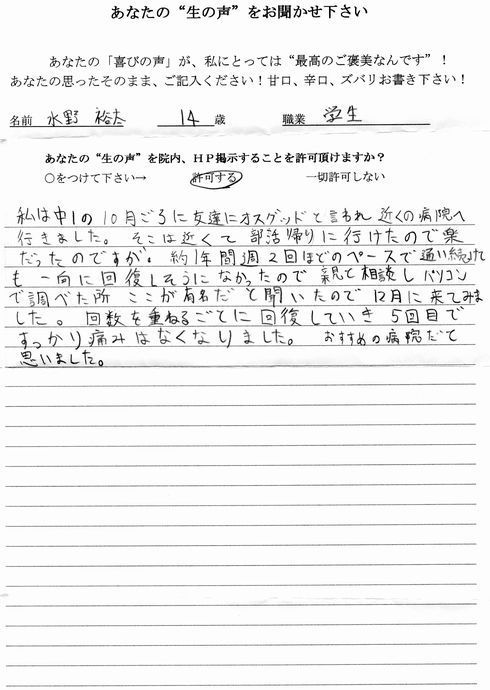 あなたの“生の声”をお聞かせ下さい
あなたの「喜びの声」が、私にとっては“最高のご褒美なんです”！
あなたの思ったそのまま、ご記入ください！甘口、辛口、ズバリお書き下さい！
名前 水野 裕太 14 歳 職業 学生
あなたの“生の声”を院内、ＨＰ掲示することを許可頂けますか？
○をつけて下さい→ 許可する 一切許可しない
私は中1の10月ごろに友達にオスグッドと言われ近くの病院へ
行きました。そこは近くて部活帰りに行けたので楽
だったのですが。約1年間週2回ほどのペースで通い続けて
も一向に回復しそうになかったので親と相談しパソコン
で調べた所ここが有名だと聞いたので12月に来てみま
した。回数を重ねるごとに回復していき5回目で
すっかり痛みはなくなりました。おすすめの病院だと
思いました。